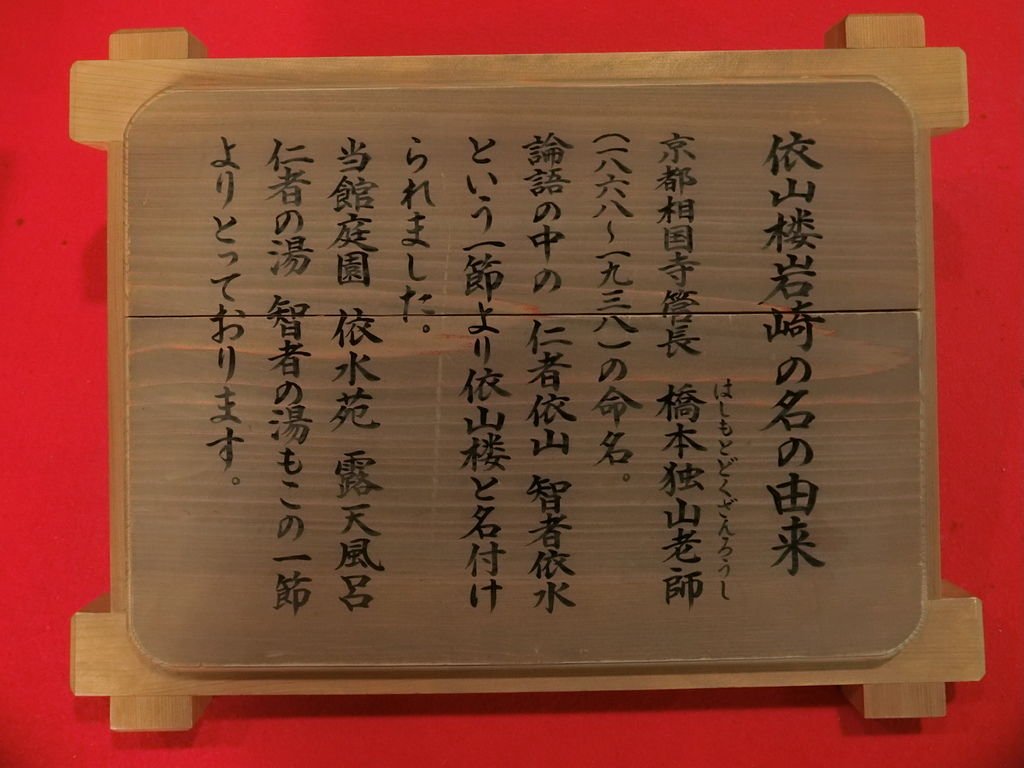 依山楼岩崎の名の由来
京都相国寺管長　橋本独山老師
はしもとどくざんろうし
(一八六八〜一九三八)の命名。
論語の中の　仁者依山　智者依水
という一節より依山楼と名付け
られました。
当館庭園　依水苑　露天風呂
仁者の湯　智者の湯もこの一節
よりとっております。